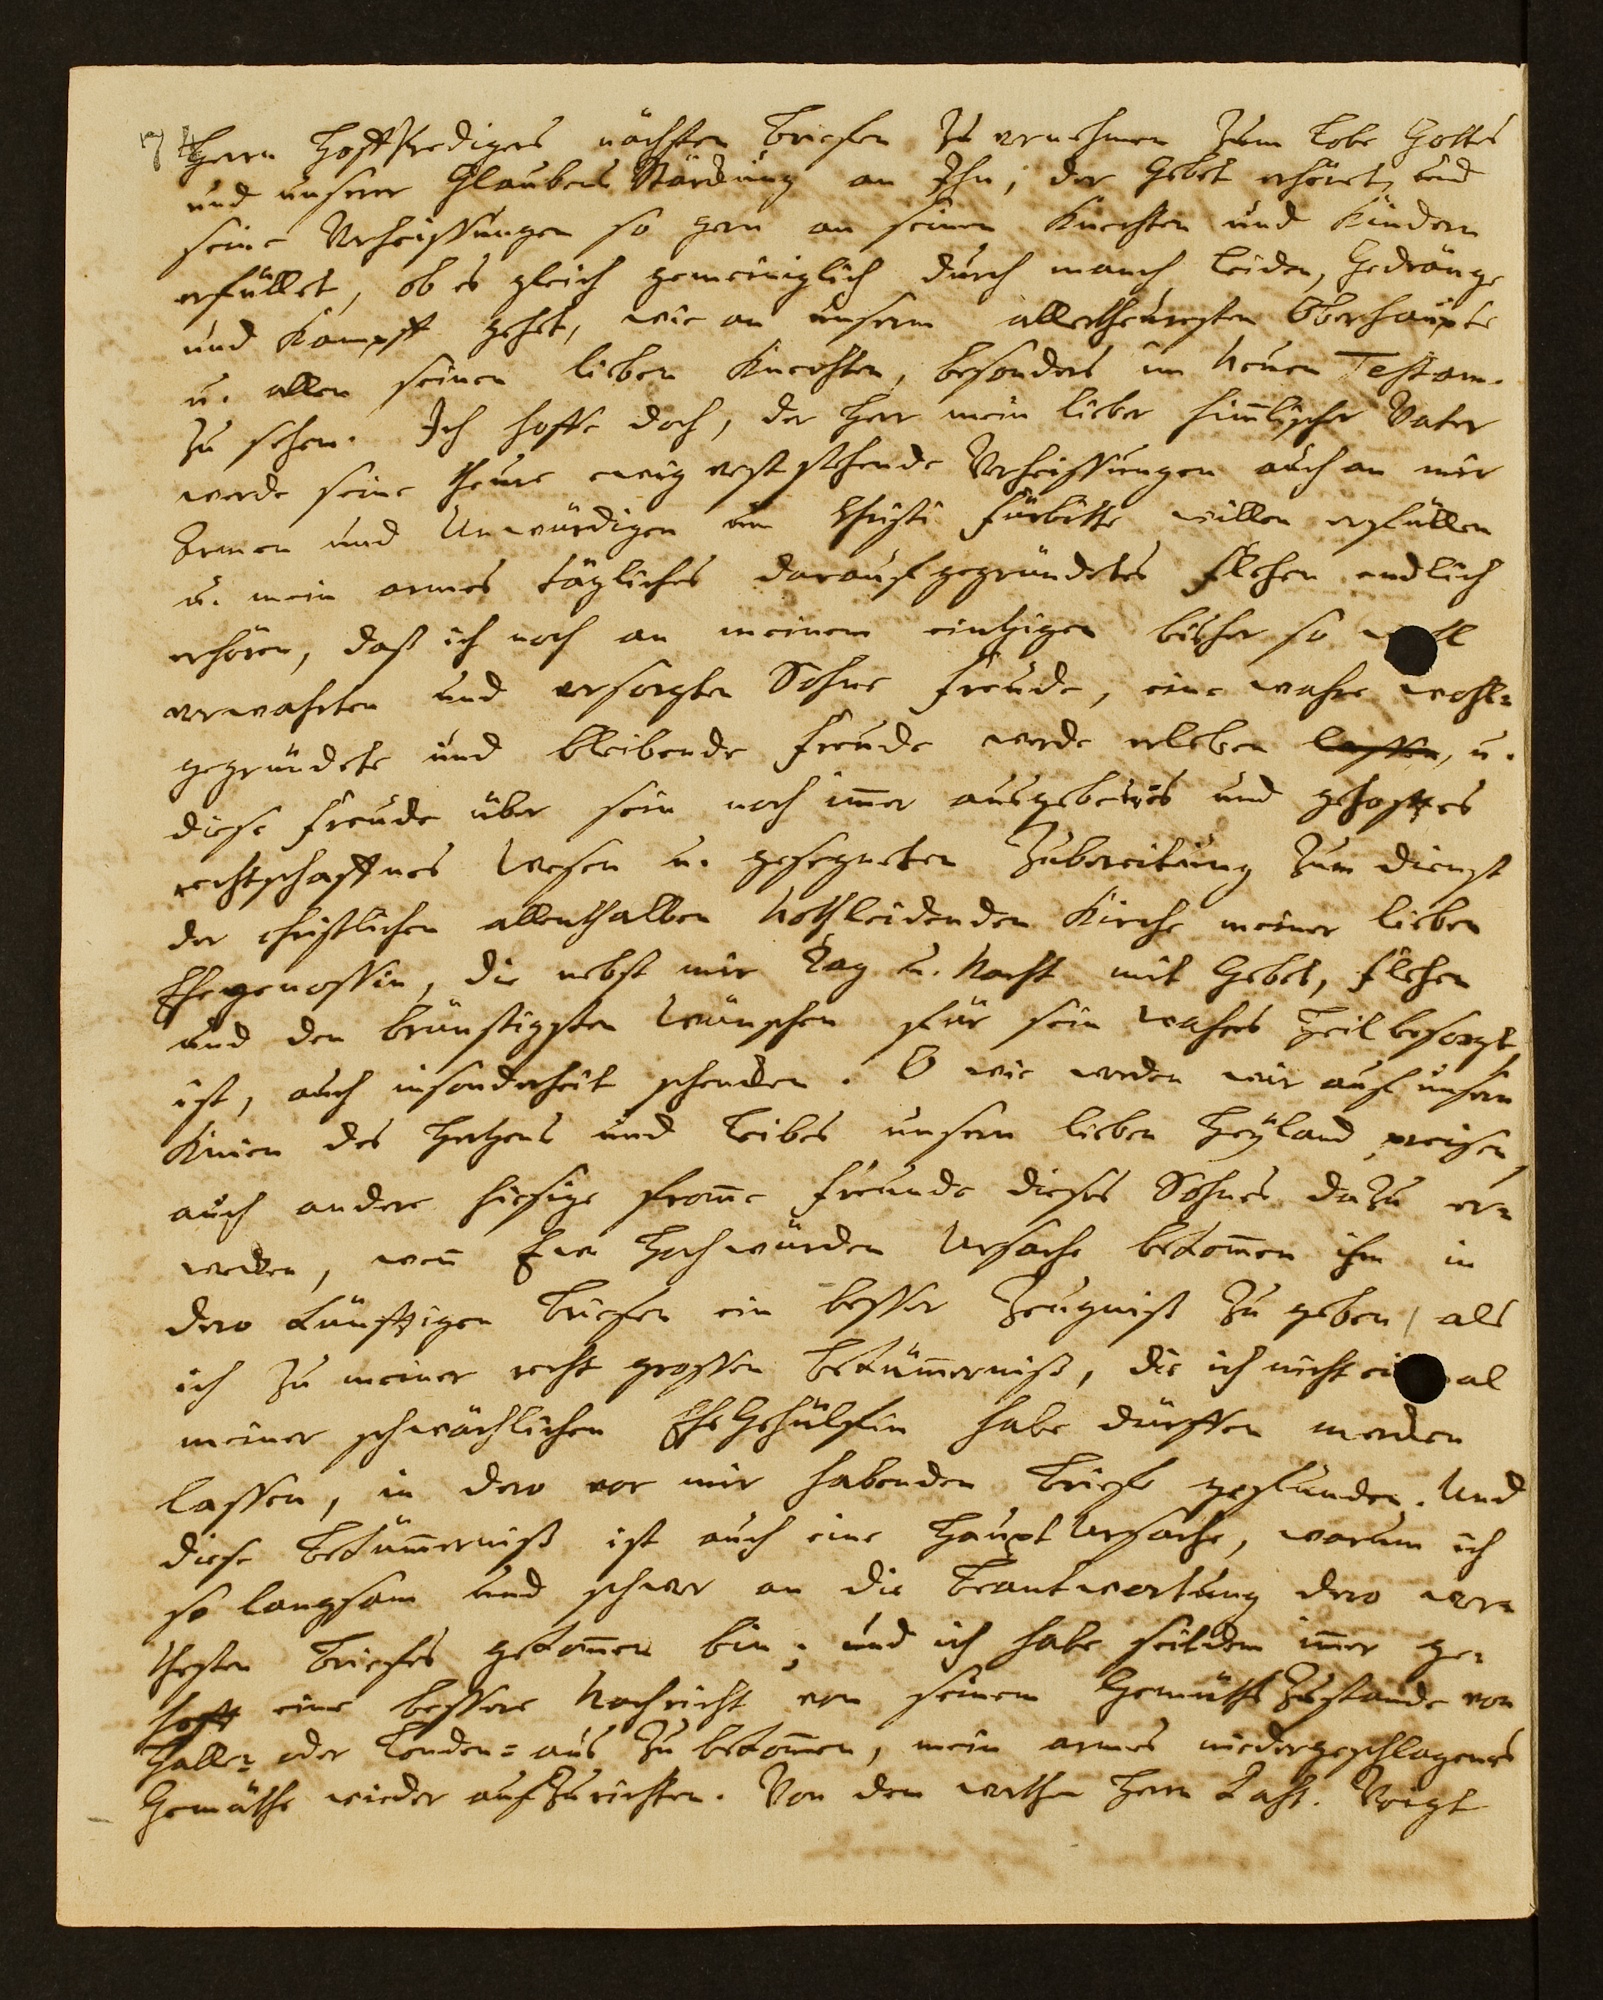 Herrn Hoffpredigers nächsten Briefen zu vernehmen zum Lobe Gottes
und unserer Glaubens Stärckung an Ihn, der Gebet erhöret, und
seine Verheissungen so gern an seinen Knechten und Kindern
erfüllet, ob es gleich gemeiniglich durch manch Leiden, Gedränge
und Kampff gehet, wie an unserm allertheuresten Oberhaupte
u. allen seinen lieben Knechten, besonders im Neuen Testam.
zu sehen. Ich hoffe doch, der Herr mein lieber him̅lischer Vater
werde seine theure ewig vest stehende Verheissungen auch an mir
Armen und Unwürdigen um Christi Fürbitte willen erfüllen
u. mein armes tägliches darauf gegründetes Flehen endlich
erhören, daß ich noch an meinem eintzigen bisher so
verwahrten und versorgten Sohne Freude, eine wahre wohl-
gegründete und bleibende Freude werde erleben lassen, u.
diese Freude über sein noch im̅er ausgebetes und gehofftes
rechtschaffnes Wesen u. gesegneten Zubereitung zum Dienst
der christlichen allenthalben Nothleidenden Kirche meiner lieben
Ehegenossin, die nebst mir Tag u. Nacht mit Gebet, Flehen
und den brünstigsten Wünschen für sein wahres Heil besorgt
ist, auch insonderheit schencken. O wie werden wir auf unsern
Knien des Hertzens und Leibes unsern lieben Heyland preisen,
auch andere hiesige from̅e Freunde dieses Sohnes dazu er-
wecken, wen̅ Ew Hochwürden Ursache bekom̅en ihm in
dero künfftigen Briefen ein besser Zeugniß zu geben, als
ich zu meiner recht grossen Bekümmerniß, die ich nicht ei al
meiner schwächlichen EheGehülfin habe dürffen mercken
lassen, in dero vor mir habenden Briefe gefunden. Und
diese Bekümmerniß ist auch eine Haupt Ursache, warum ich
so langsam und schwer an die Beantwortung dero wer-
thesten Briefes gekom̅en bin; und ich habe seitdem im̅er ge-
hofft eine bessere Nachricht von seinem Gemüths Zustande von
Halle- oder London- aus zu bekom̅en, mein armes niedergeschlagenes
Gemüthe wieder aufzurichten. Von dem werthen Herrn Past. Voigt